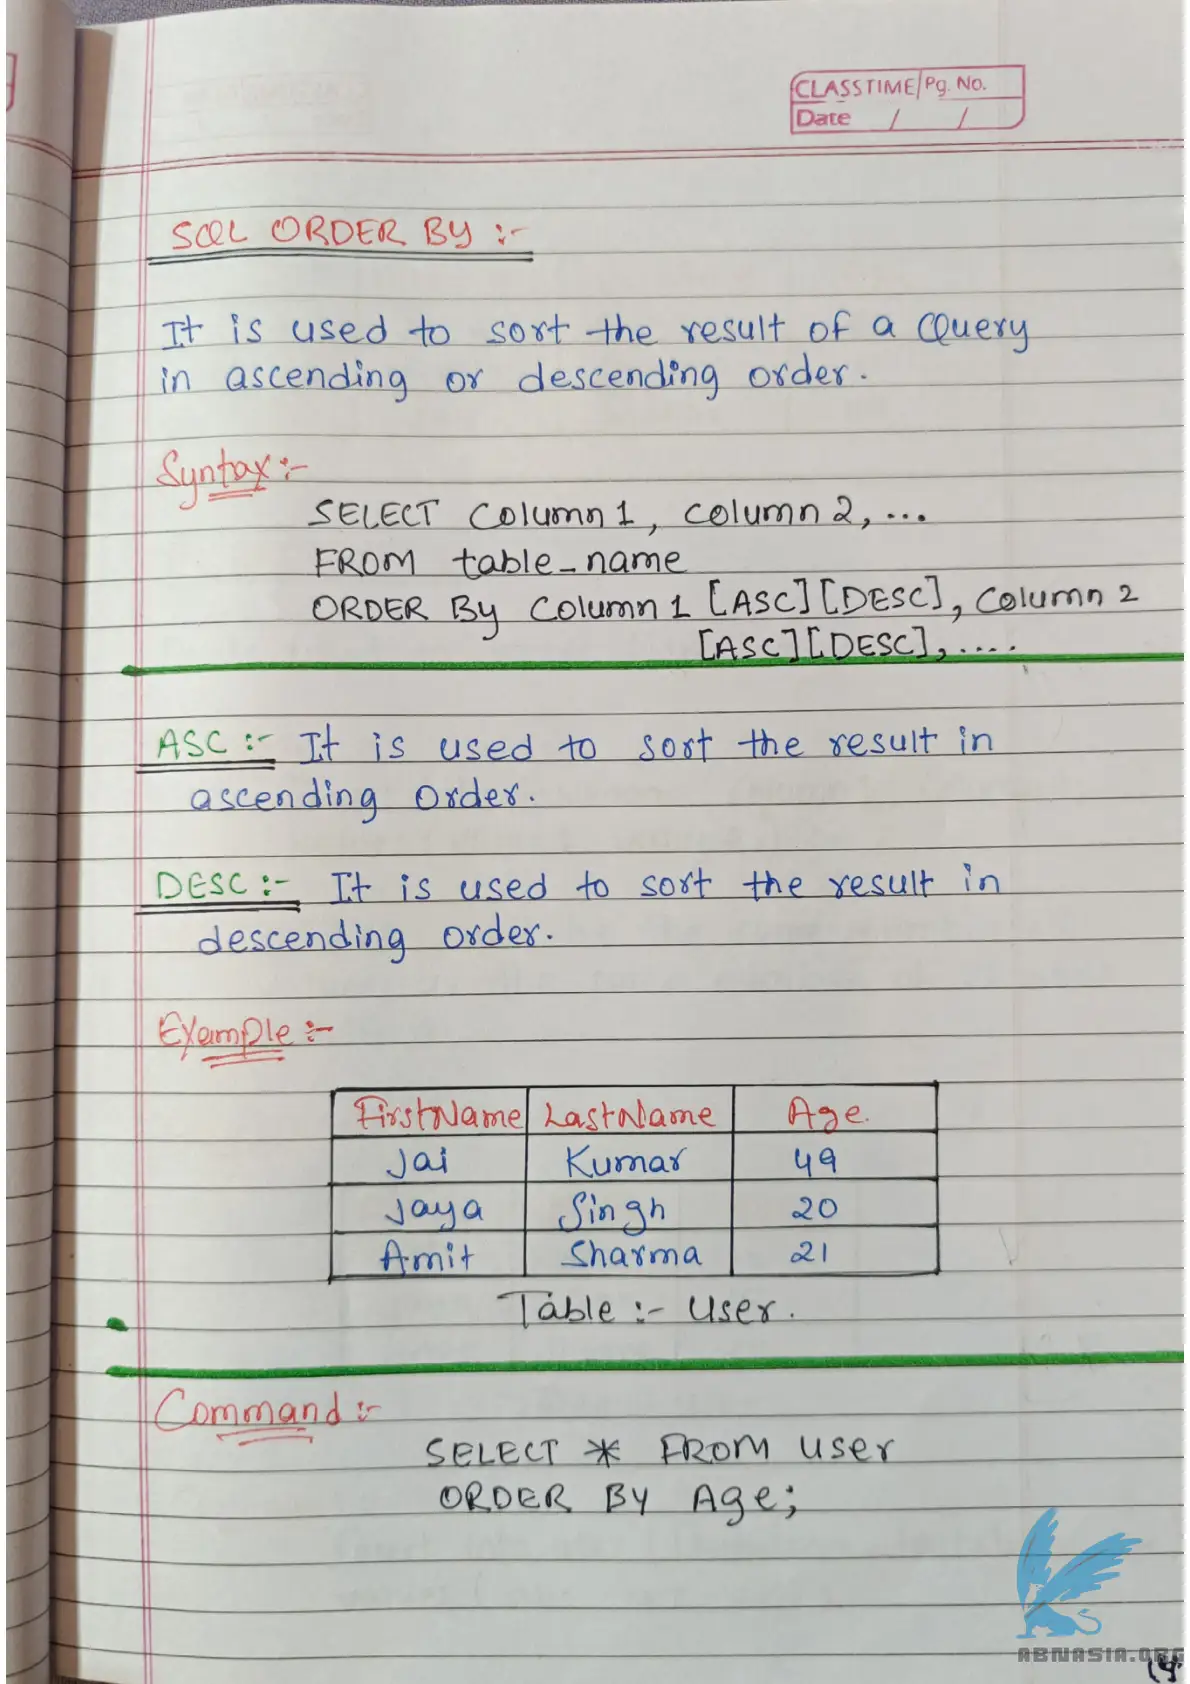 CLASSTIME Pg. No.
Date / /
SQL ORDER BY :-
It is used to sort the result of a Query
in ascending or descending order.
Syntax :-
SELECT Column 1, column 2, ...
FROM table_name
ORDER By Column 1 [ASC][DESC], Column 2
[ASC][DESC], ....
ASC :- It is used to sort the result in
ascending order.
DESC :- It is used to sort the result in
descending order.
Example :-
FirstName LastName Age.
Jai Kumar 49
Jaya Singh 20
Amit Sharma 21
Table :- User.
Command :-
SELECT * FROM user
ORDER BY Age;
ABNASIA.ORG